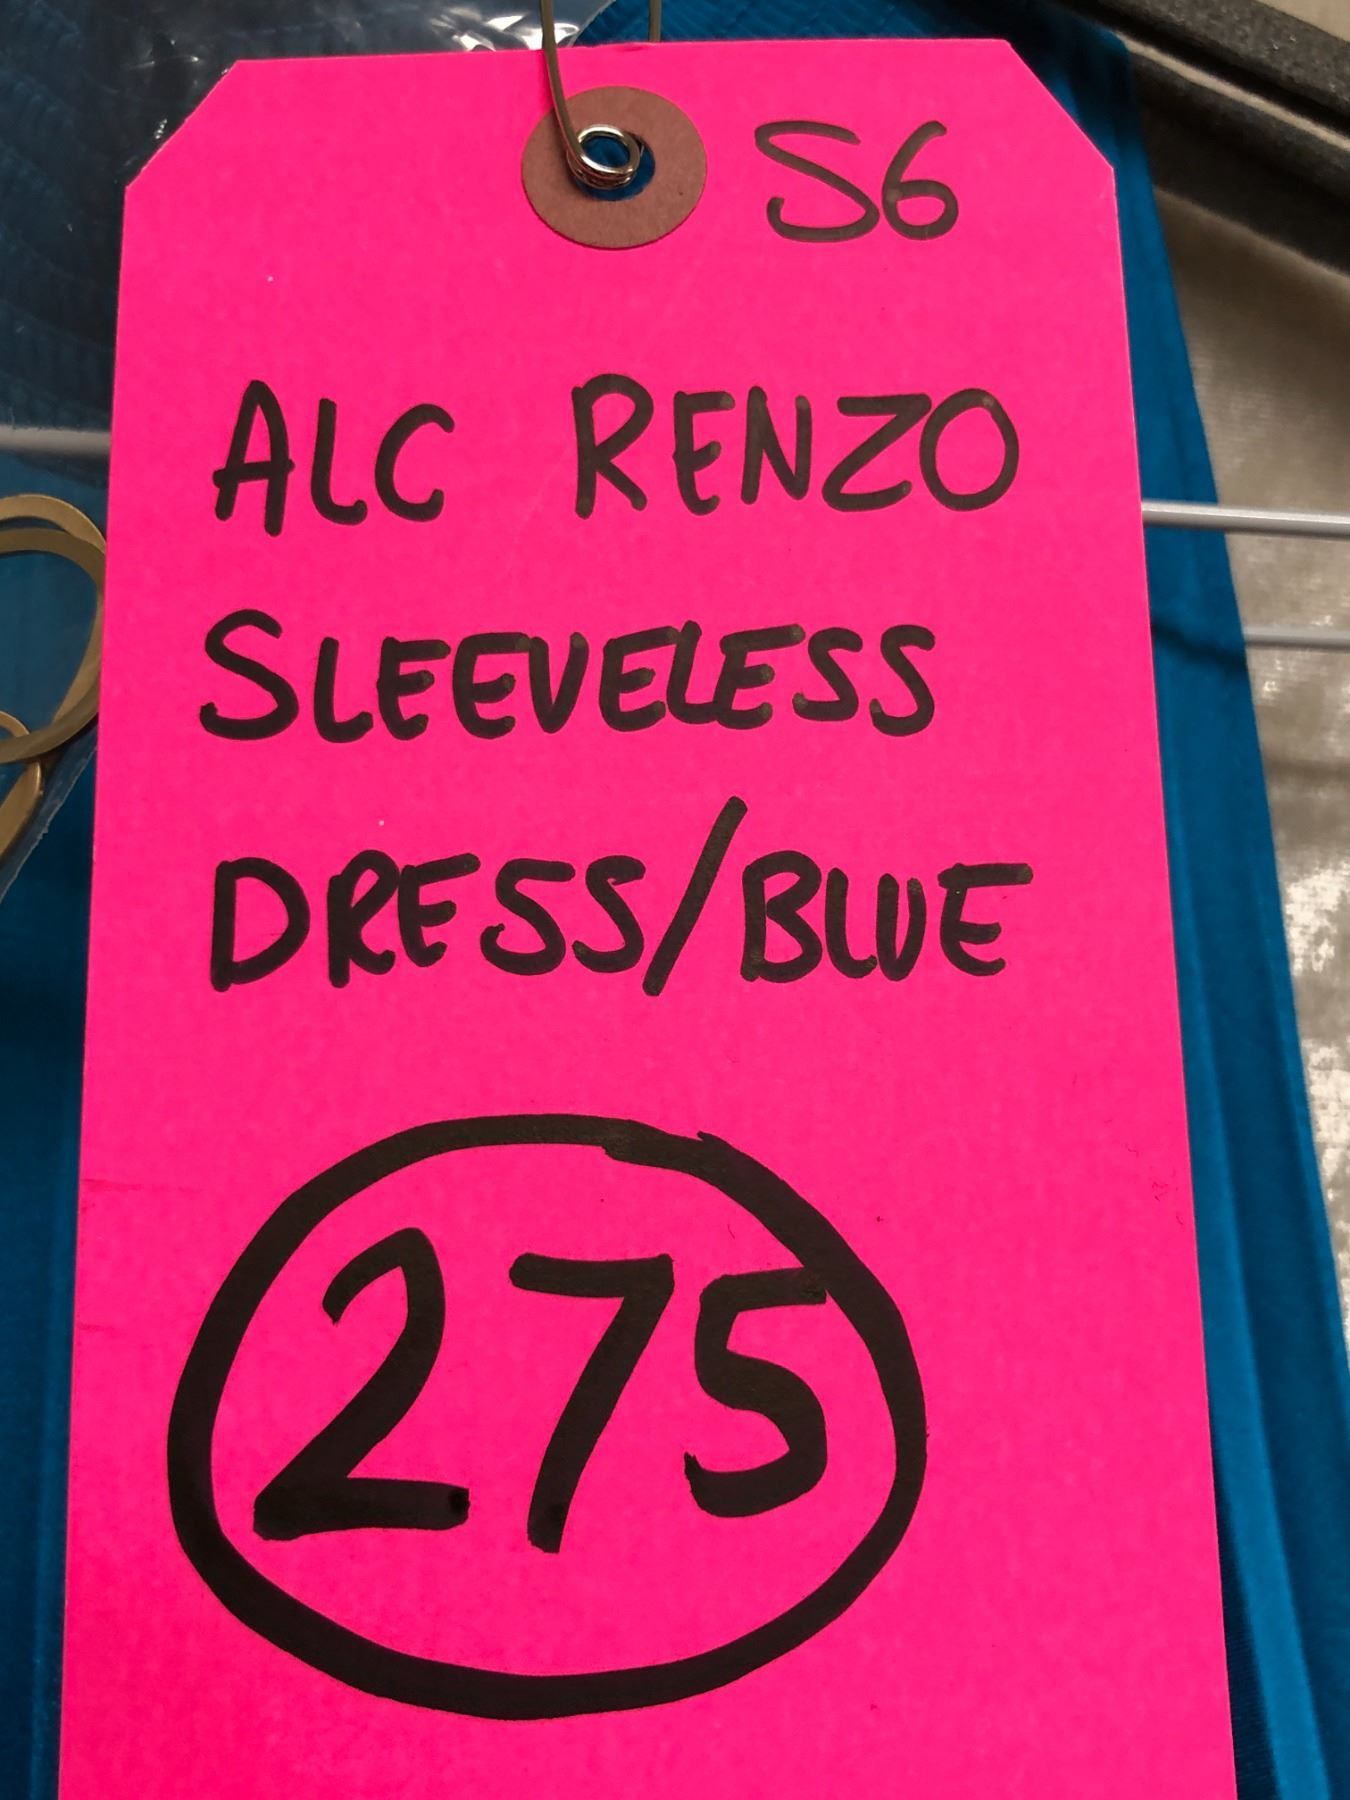 S6
ALC RENZO
SLEEVELESS
DRESS/BLUE
275